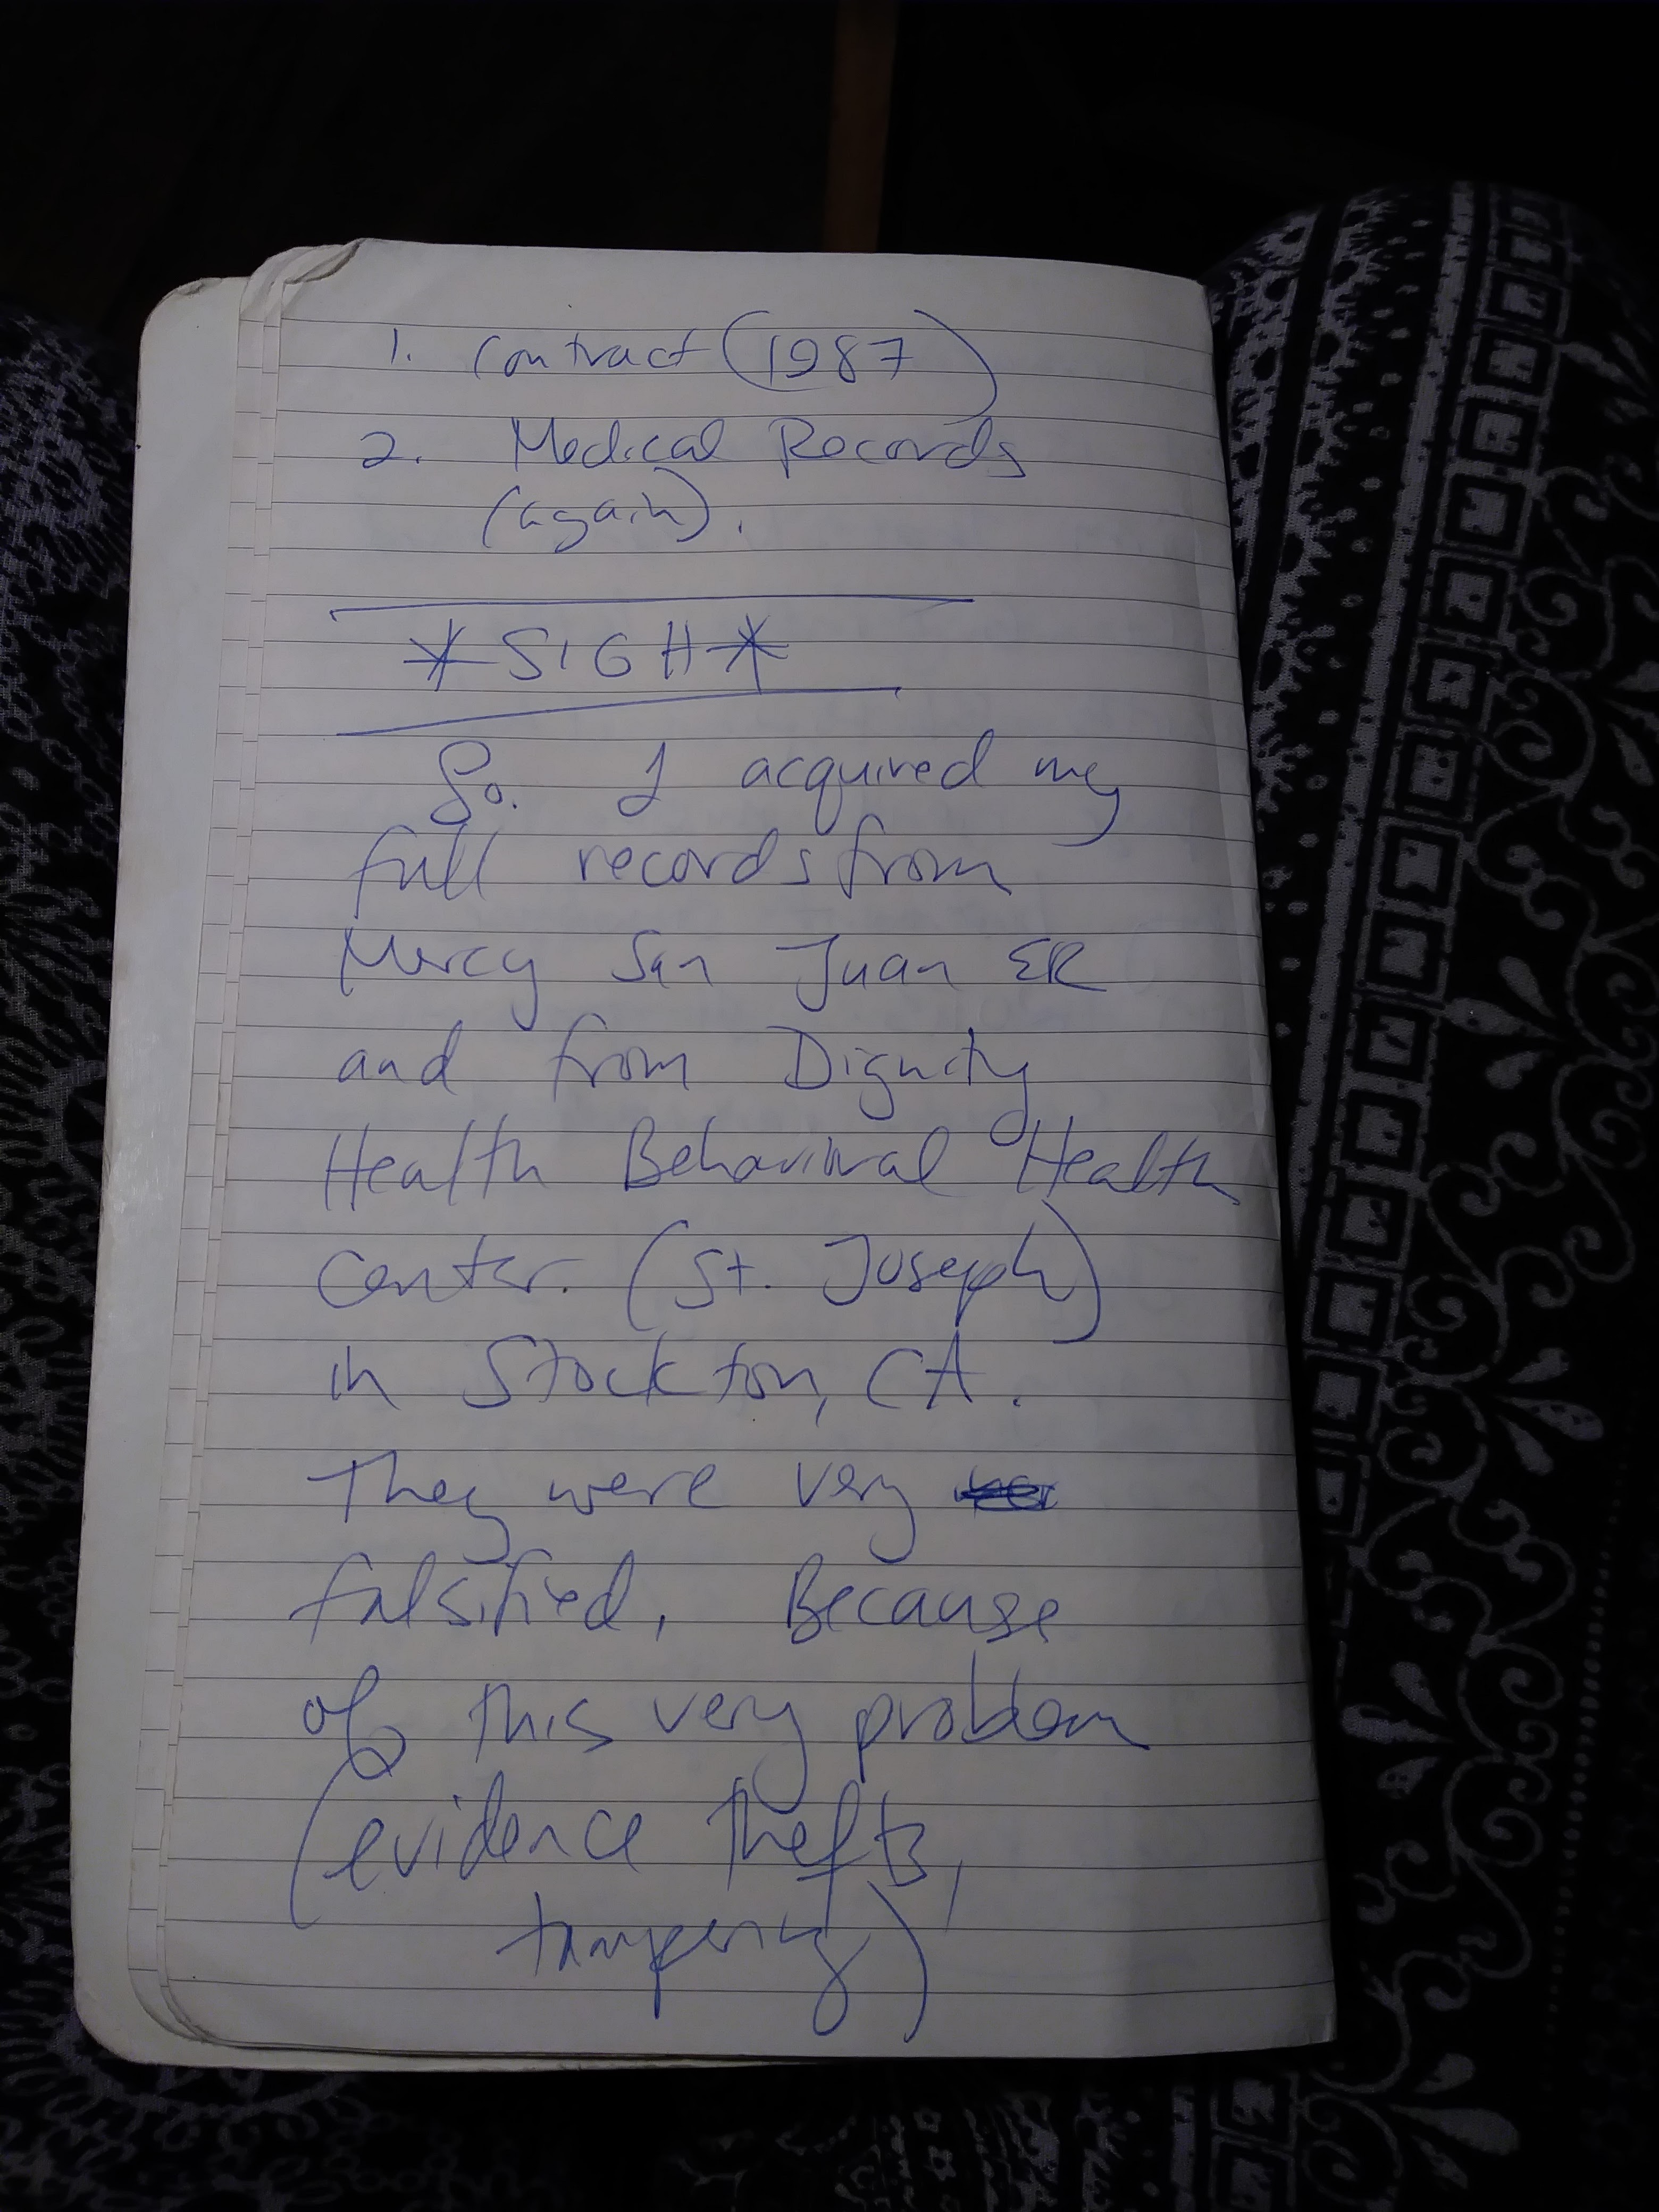 1. Contract (1987)
2. Medical Records
(again).
*SIGH*
So. I acquired my
full records from
Mercy San Juan ER
and from Dignity
Health Behavioral Health
Center. (St. Joseph)
in Stockton, CA.
They were very
falsified. Because
of this very problem
(evidence thefts,
tampering)